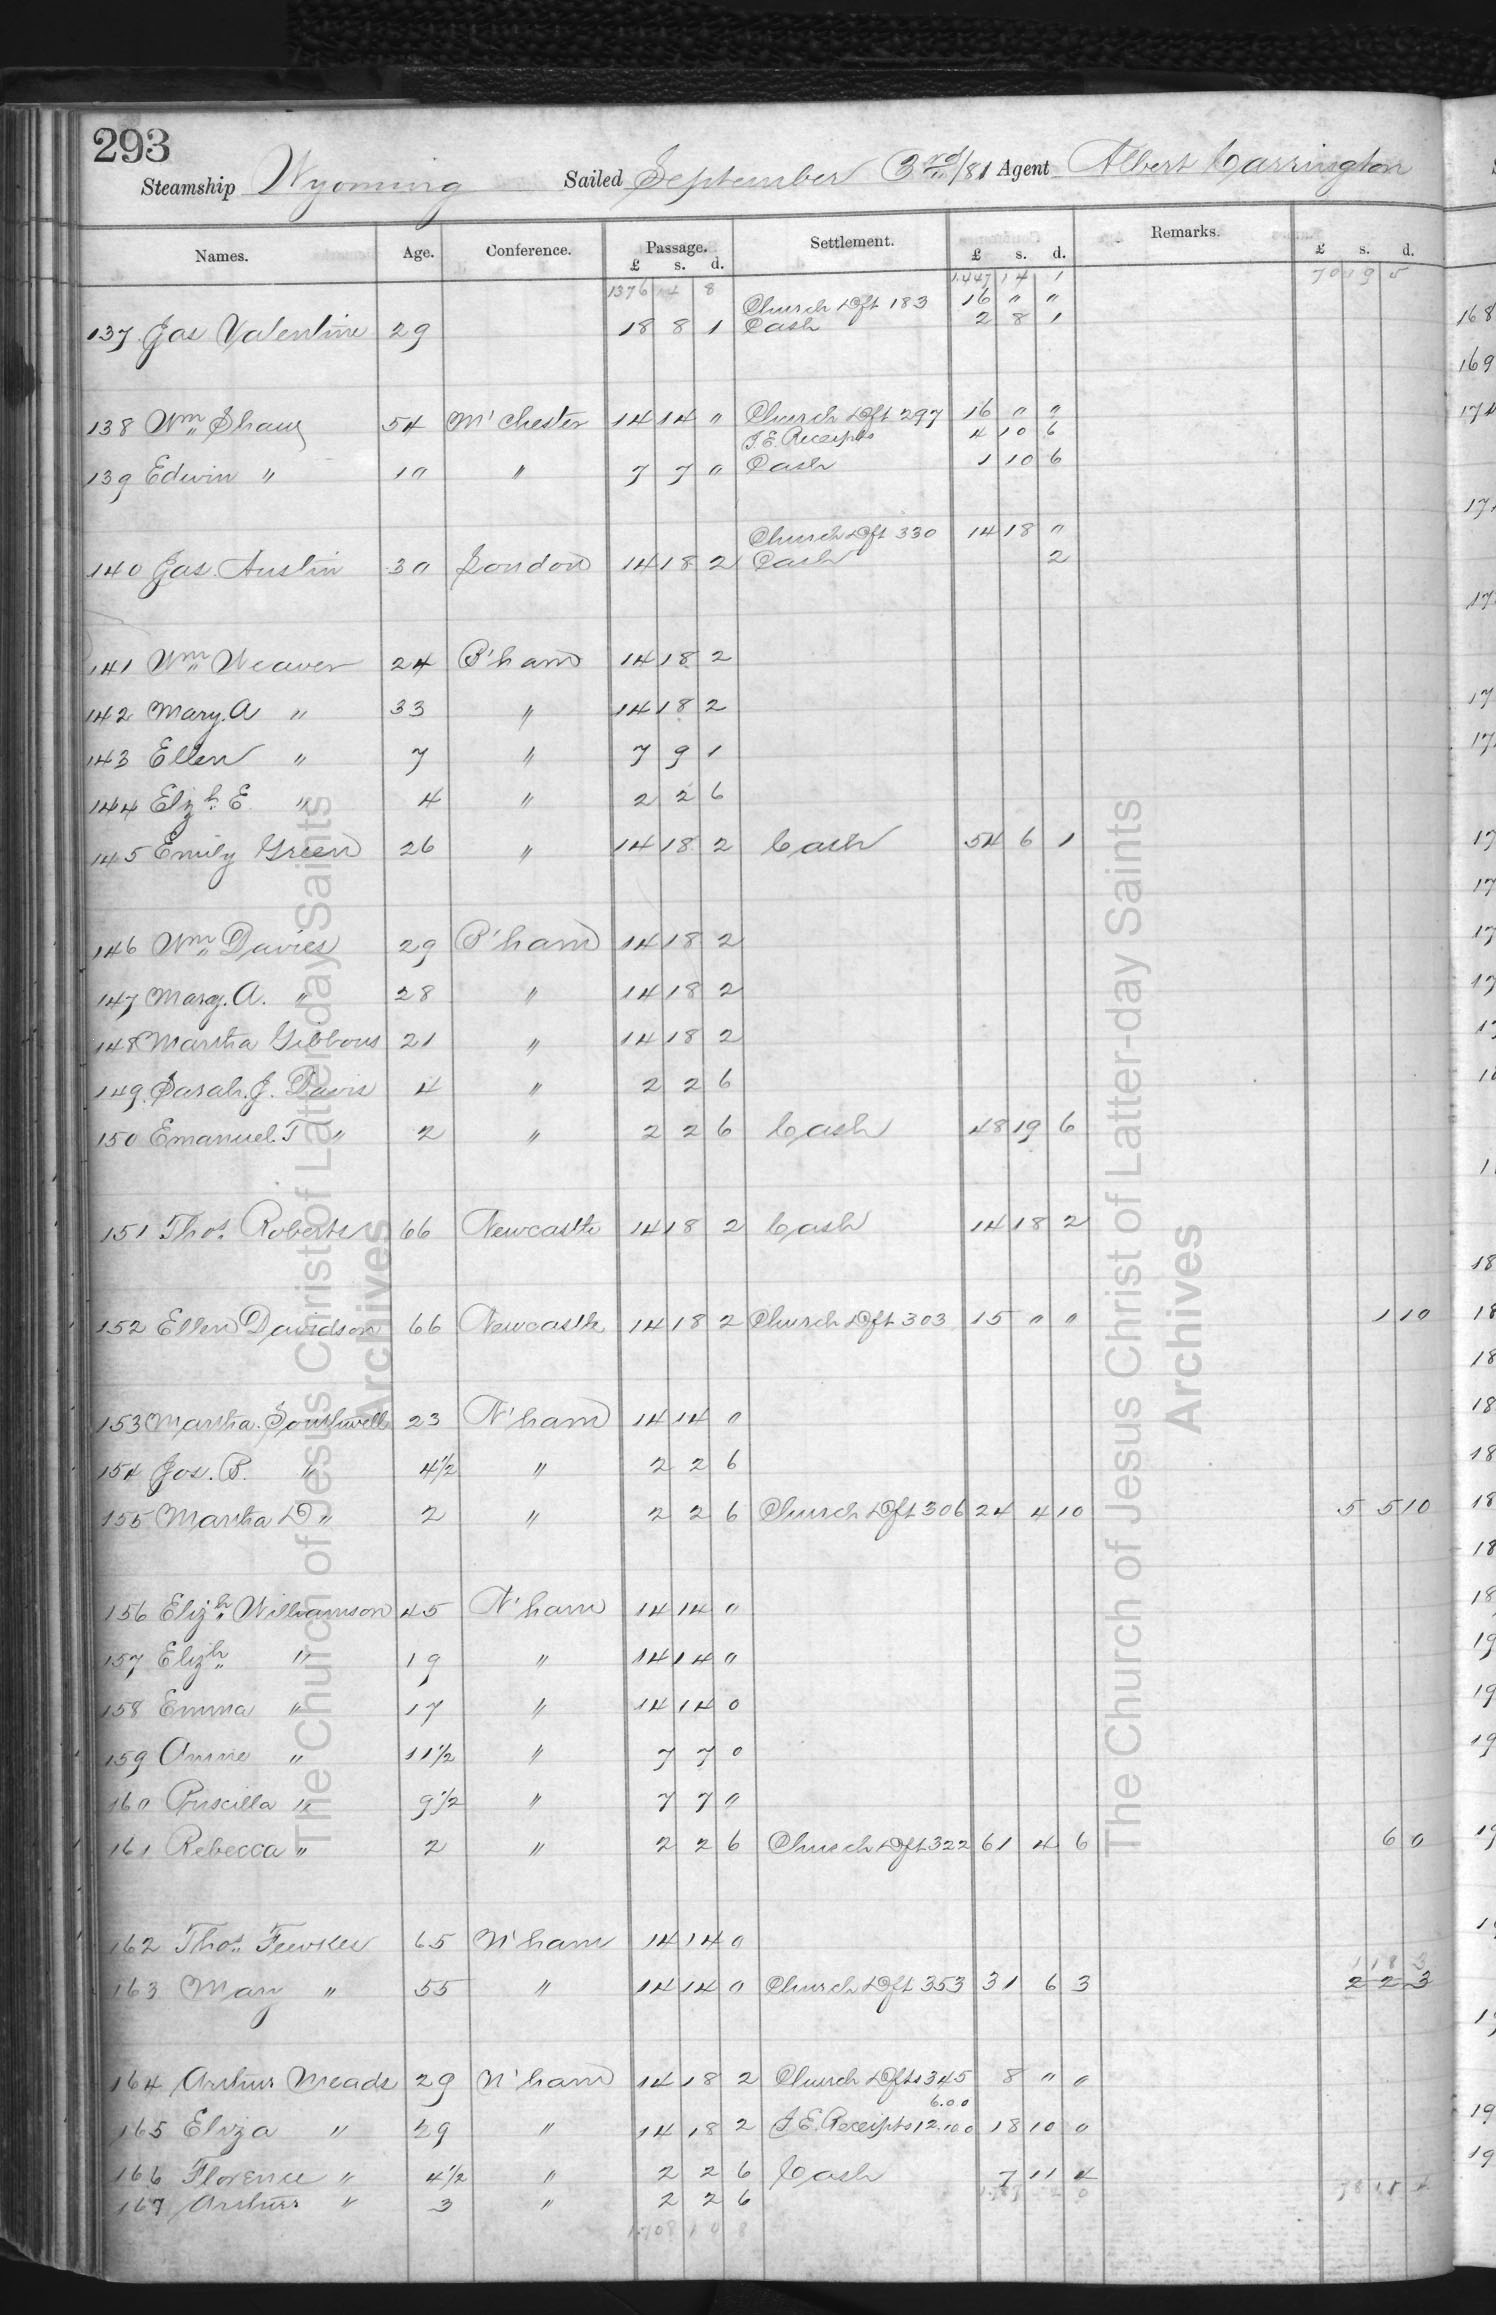 293
Steamship Wyoming Sailed September 3rd/81 Agent Albert Carrington
Names. Age. Conference. Passage. £ s. d. Settlement. £ s. d. Remarks. £ s. d.
1376 14 8 1447 14 1 70 19 5
Church Dft 183 16 " "
137 Jas Valentine 29 18 8 1 Cash 2 8 1
138 Wm Shaw 54 M'chester 14 14 " Church Dft 297 16 " "
I E. Receipts 4 10 6
139 Edwin " 10 " 7 7 " Cash 1 10 6
Church Dft 330 14 18 "
140 Jas. Austin 30 London 14 18 2 Cash 2
141 Wm Weaver 24 B'ham 14 18 2
142 Mary. A " 33 " 14 18 2
143 Ellen " 7 " 7 9 1
144 Elizh. E. " 4 " 2 2 6
145 Emily Green 26 " 14 18 2 Cash 54 6 1
146 Wm Davies 29 B'ham 14 18 2
147 Mary. A. " 28 " 14 18 2
148 Martha Gibbons 21 " 14 18 2
149. Sarah. J. Davis 4 " 2 2 6
150 Emanuel. T " 2 " 2 2 6 Cash 48 19 6
151 Thos. Roberts 66 Newcastle 14 18 2 Cash 14 18 2
152 Ellen Davidson 66 Newcastle 14 18 2 Church Dft 303 15 " " 1 10
153 Martha. Southwell 23 N'ham 14 14 0
154 Jos. B. " 4 1/2 " 2 2 6
155 Martha D " 2 " 2 2 6 Church Dft 306 24 4 10 5 5 10
156 Elizh Williamson 45 N'ham 14 14 0
157 Elizh " 19 " 14 14 0
158 Emma " 17 " 14 14 0
159 Annie " 11 1/2 " 7 7 0
160 Priscilla " 9 1/2 " 7 7 0
161 Rebecca " 2 " 2 2 6 Church Dft 322 61 4 6 6 0
162 Thos. 65 N'ham 14 14 0
1 18 3
163 Mary " 55 " 14 14 0 Church Dft 353 31 6 3 2 2 3
164 Arthur Meads 29 N'ham 14 18 2 Church Dfts 345 8 " "
6.0.0
165 Eliza " 29 " 14 18 2 I E. Receipts 12.10 0 18 10 0
166 Florence " 4 1/2 " 2 2 6 Cash 7 11 4
167 Arthur " 3 " 2 2 6
1708 10 8
The Church of Jesus Christ of Latter-day Saints
Archives
The Church of Jesus Christ of Latter-day Saints
Archives